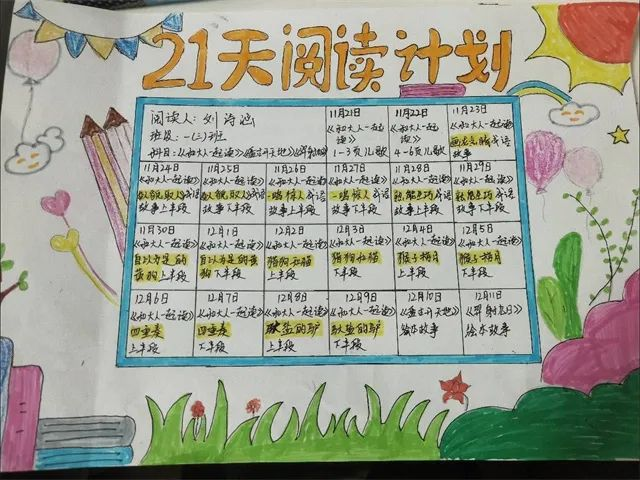 21天阅读计划
阅读人:刘诗涵
班级:一(三)班
书目:《和大人一起读》《盘古开天地》《羿射九日》
11月21日
《和大人一起读》
1-3页儿歌
11月22日
《和大人一起读》
4-6页儿歌
11月23日
《和大人一起读》
画龙点睛成语
故事
11月24日
《和大人一起读》
以貌取人成语
故事上半段
11月25日
《和大人一起读》
以貌取人成语
故事下半段
11月26日
《和大人一起读》
一鸣惊人成语
故事上半段
11月27日
《和大人一起读》
一鸣惊人成语
故事下半段
11月28日
《和大人一起读》
熟能生巧成语
故事上半段
11月29日
《和大人一起读》
熟能生巧成语
故事下半段
11月30日
《和大人一起读》
自以为是的
狗上半段
12月1日
《和大人一起读》
自以为是的
狗下半段
12月2日
《和大人一起读》
狗和猫
上半段
12月3日
《和大人一起读》
狗和猫
下半段
12月4日
《和大人一起读》
猴子捞月
上半段
12月5日
《和大人一起读》
猴子捞月
下半段
12月6日
《和大人一起读》
四季
上半段
12月7日
《和大人一起读》
四季
下半段
12月8日
《和大人一起读》
驮盐的驴
上半段
12月9日
《和大人一起读》
驮盐的驴
下半段
12月10日
《盘古开天地》
绘本故事
12月11日
《羿射九日》
绘本故事